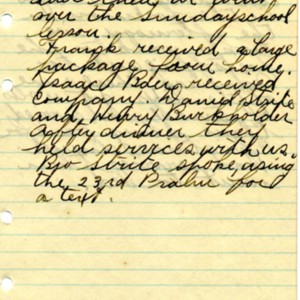 over the Sundayschool
lesson.
Frank received a large
package from home.
Isaac Baer received
company. Daniel Strite
and Henry Burkholder
After dinner they
held services with us.
Bro Strite spoke, using
the 23rd Psalm for
a text.